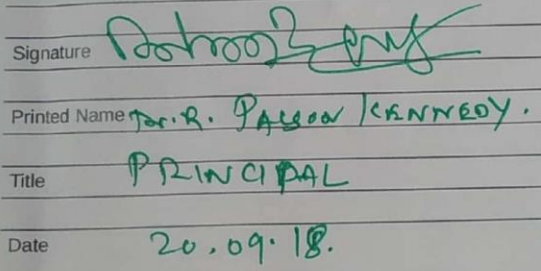 Signature
Printed Name Dr. R. PALSON KENNEDY.
Title PRINCIPAL
Date 20.09.18.